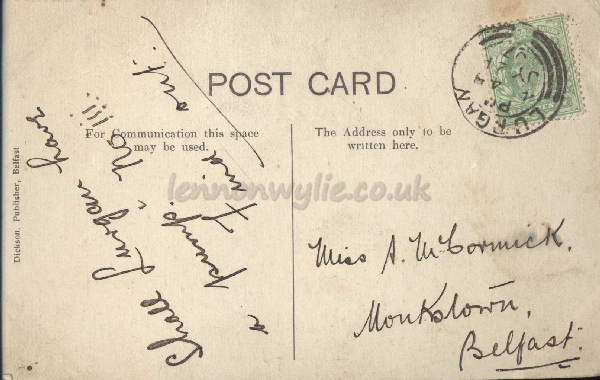 POST CARD
For Communication this space
may be used.
The Address only to be
written here.
Dickson, Publisher, Belfast
Shall Lurgan have
a pump; No!!!
Find out:
Miss A. McCormick.
Monkstown,
Belfast.
LURGAN
lennonwylie.co.uk